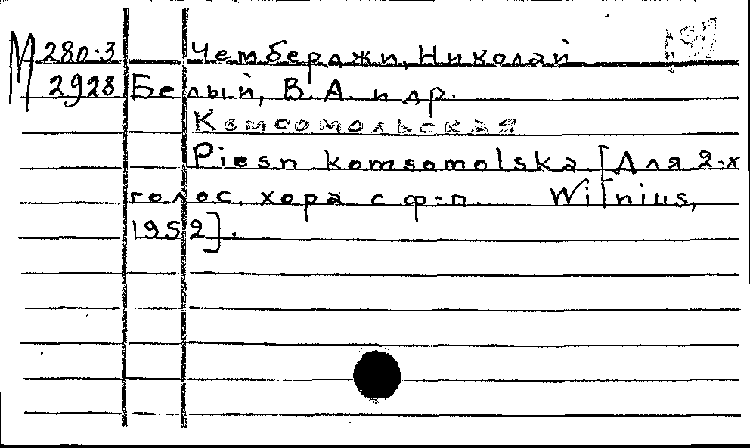 М 280-3 Чемберджи, Николай
2928 Белый, В. А. и др.
Комсомольская
Pieśn komsomolska [Для 2-х
голос. хора с ф-п. Wilnius,
1952].